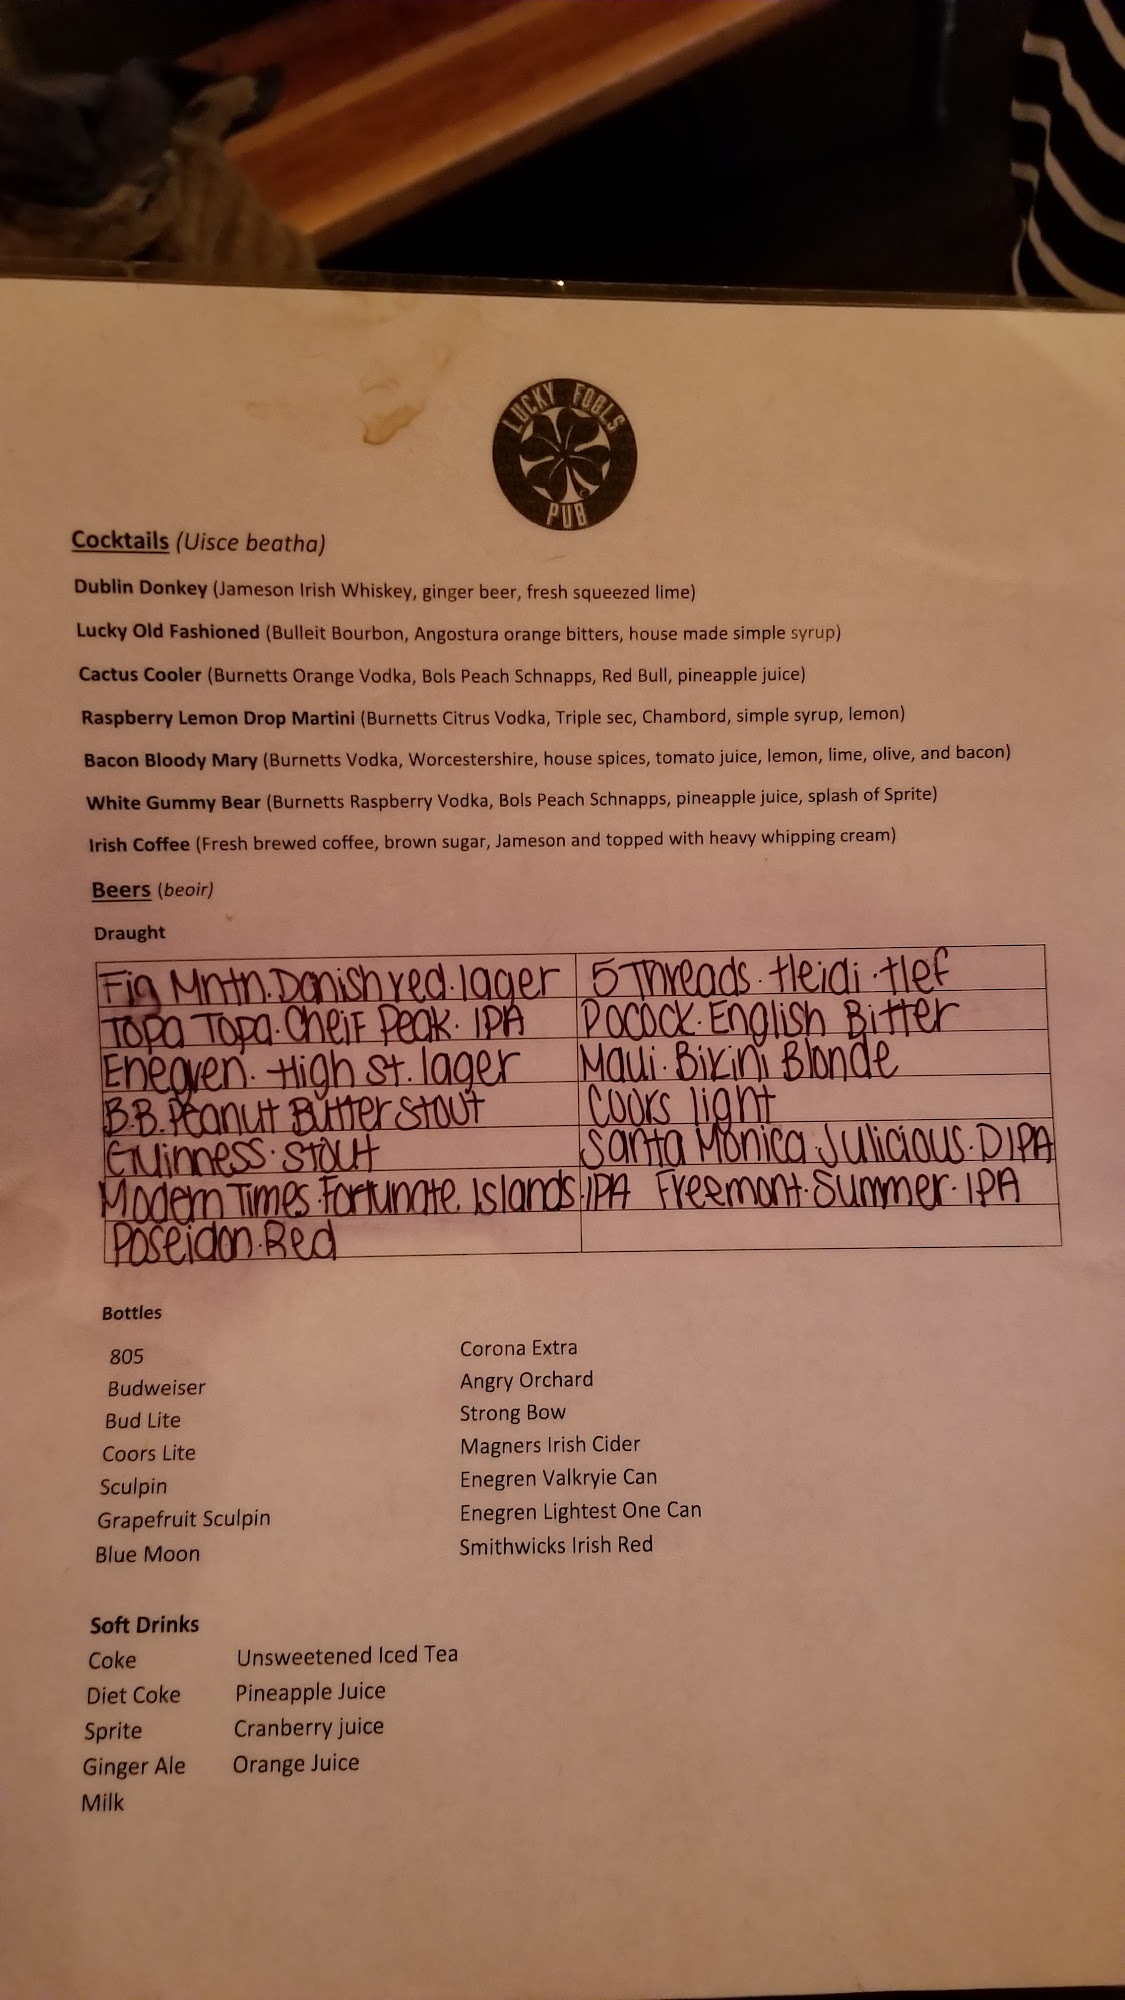 LUCKY FOOLS
PUB
Cocktails (Uisce beatha)
Dublin Donkey (Jameson Irish Whiskey, ginger beer, fresh squeezed lime)
Lucky Old Fashioned (Bulleit Bourbon, Angostura orange bitters, house made simple syrup)
Cactus Cooler (Burnetts Orange Vodka, Bols Peach Schnapps, Red Bull, pineapple juice)
Raspberry Lemon Drop Martini (Burnetts Citrus Vodka, Triple sec, Chambord, simple syrup, lemon)
Bacon Bloody Mary (Burnetts Vodka, Worcestershire, house spices, tomato juice, lemon, lime, olive, and bacon)
White Gummy Bear (Burnetts Raspberry Vodka, Bols Peach Schnapps, pineapple juice, splash of Sprite)
Irish Coffee (Fresh brewed coffee, brown sugar, Jameson and topped with heavy whipping cream)
Beers (beoir)
Draught
Fig Mntn. Danish red. lager 5 Threads. Heidi. Hef
Topa Topa. Cheif Peak. IPA Pocock. English Bitter
Enegren. High St. lager Maui. Bikini Blonde
B.B. Peanut Butter Stout Coors light
Guinness. Stout Santa Monica Julicious. DIPA
Modern Times. Fortunate Islands. IPA Freemont. Summer. IPA
Poseidon. Red
Bottles
805 Corona Extra
Budweiser Angry Orchard
Bud Lite Strong Bow
Coors Lite Magners Irish Cider
Sculpin Enegren Valkryie Can
Grapefruit Sculpin Enegren Lightest One Can
Blue Moon Smithwicks Irish Red
Soft Drinks
Coke Unsweetened Iced Tea
Diet Coke Pineapple Juice
Sprite Cranberry juice
Ginger Ale Orange Juice
Milk